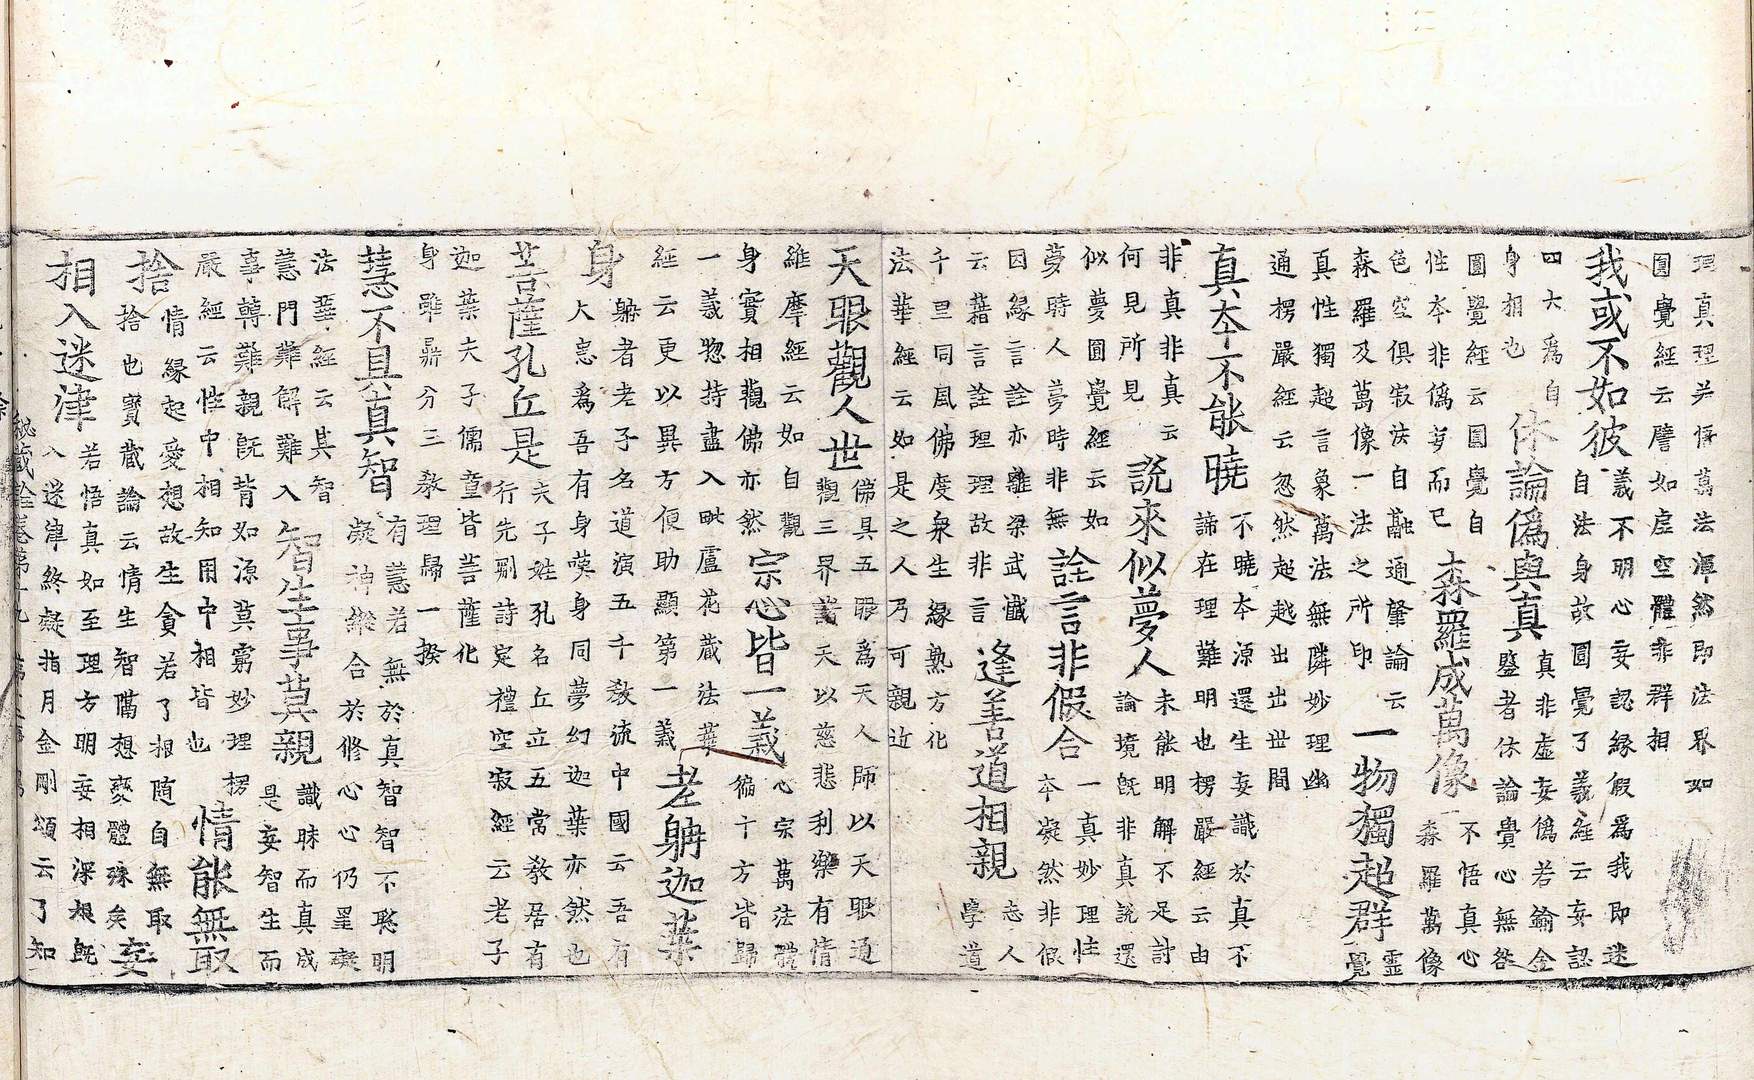 理真理并悟萬法渾然即法界如
圓覺經云譬如虛空體非群相
我或不如彼
義不明心妄認緣假為我即迷
自法身故圓覺了義經云妄認
四大為自
身相也
休論偽與真
真非虛妄偽若鍮金
鑒者休論覺心無咎
圓覺經云圓覺自
性本非偽夢而已
森羅成萬像
不悟真心
森羅萬像
色空俱寂汰自融通肇論云
森羅及萬像一法之所印
一物獨起群
靈
覺
真性獨起言象萬法無隣妙理幽
通楞嚴經云忽然起越出出世間
真本不能曉
不曉本源還生妄識於真不
諦在理難明也楞嚴經云由
非真非真云
何見所見
說來似夢人
未能明解不足討
論境既非真說還
似夢圓覺經云如
夢時人夢時非無
詮言非假合
一真妙理性
本凝然非假
因緣言詮亦離梁武懺
云藉言詮理理故非言
逢善道相親
志人
學道
千里同風佛度衆生緣熟方化
法華經云如是之人乃可親近
天眼觀人世
佛具五眼為天人師以天眼通
觀三界諸天以慈悲利樂有情
維摩經云如自觀
身實相觀佛亦然
宗心皆一義
心宗萬法體
徧十方皆歸
一義惣持盡入毗盧花藏法華
經云更以異方便助顯第一義
老聃迦葉
身
躬者老子名道演五千教流中國云吾有
大患為吾有身嘆身同夢幻迦葉亦然也
菩薩孔丘是
夫子姓孔名丘立五常教居有
行先刪詩定禮空寂經云老子
迦葉夫子儒童皆菩薩化
身雖鼎分三教理歸一揆
慧不具真智
有慧若無於真智智不聡明
凝神合於修心心仍呈礙
法華經云其智
慧門難解難入
智生事莫親
識昧而真成
是妄智生而
事轉難親既背如源莫窮妙理楞
嚴經云性中相知用中相皆也
情能無取
捨
情緣起愛想故生貪若了相隨自無取
捨也寶藏論云情生智隔想變體殊矣
妄
相入迷津
若悟真如至理方明妄相深根既
入迷津終礙指月金剛頌云了知
秘藏詮卷第十九